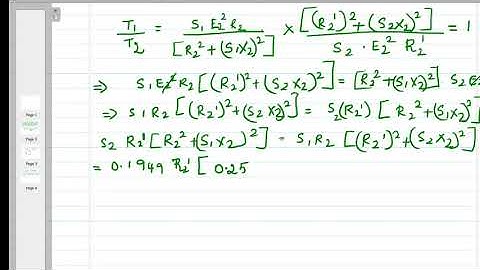 T₁/T₂ = S₁ E₂² R₂ / [R₂² + (S₁X₂)²] × [(R₂')² + (S₂X₂)²] / S₂ · E₂² R₂' = 1
⇒ S₁ E₂² R₂ [(R₂')² + (S₂X₂)²] = [R₂² + (S₁X₂)²] S₂
⇒ S₁ R₂ [(R₂')² + (S₂X₂)²] = S₂(R₂') [R₂² + (S₁X₂)²]
S₂ R₂' [R₂² + (S₁X₂)²] = S₁ R₂ [(R₂')² + (S₂X₂)²]
= 0.1949 R₂' [ 0.25
Page 1
Page 2
Page 3
Page 4